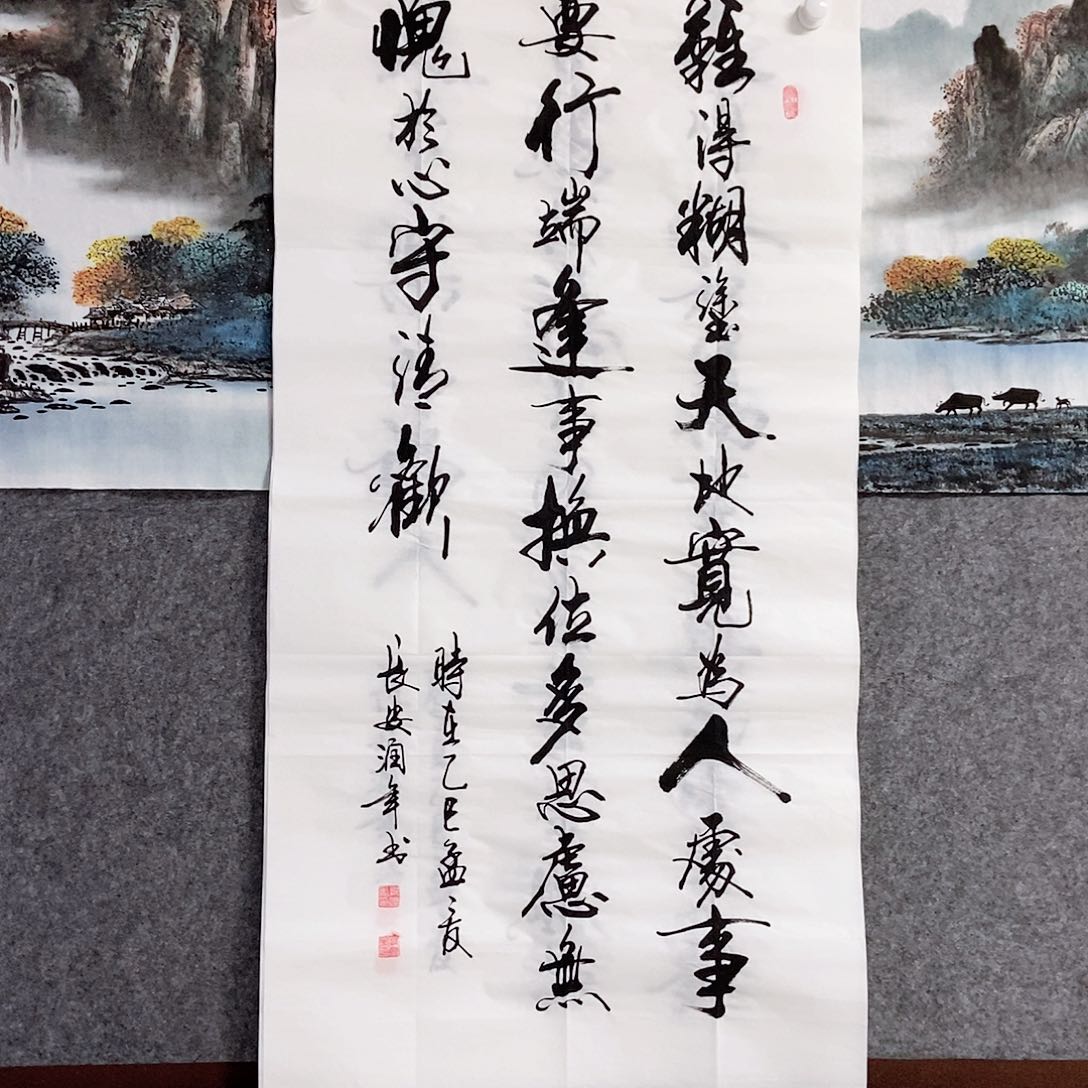 難得糊塗天地寬為人處事
要行端逢事換位多思慮無
愧於心守清歡
時在乙巳孟夏
長安潤年書